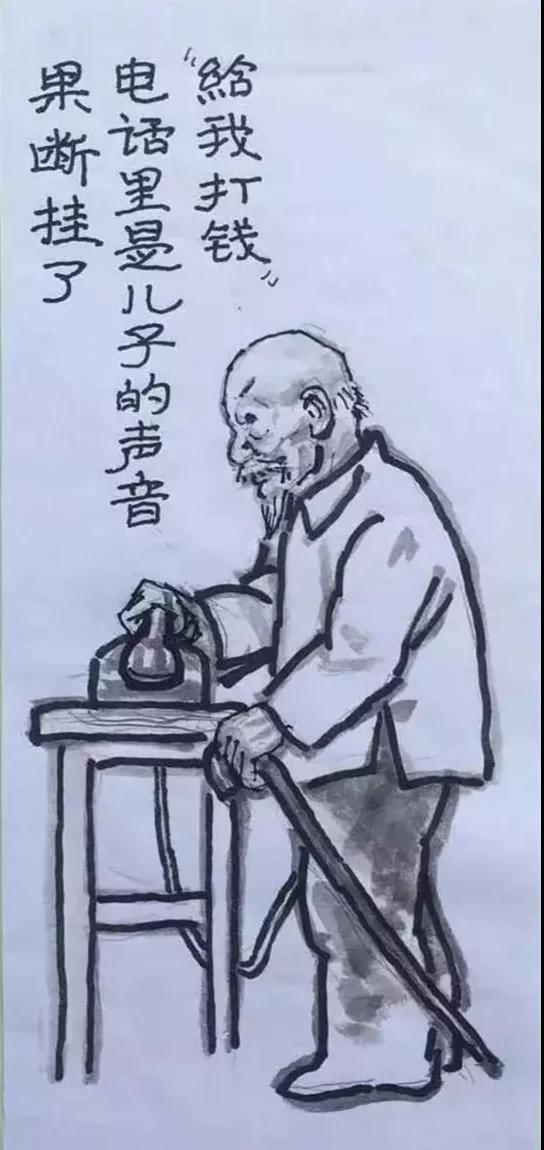 “給我打钱”
电话里是儿子的声音
果断挂了